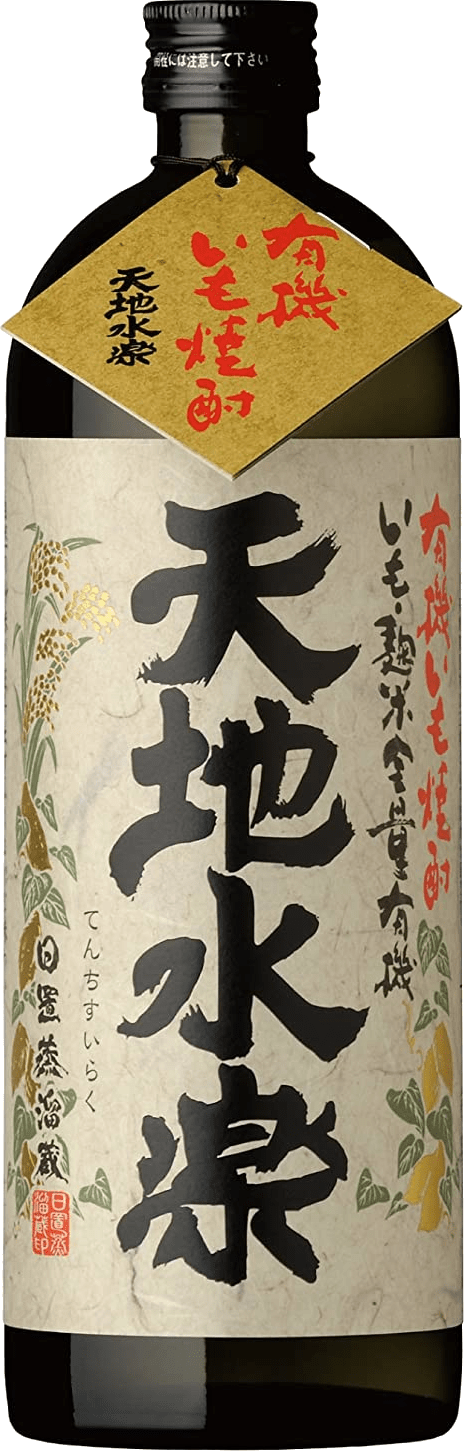 開栓には注意して下さい
有機
いも焼酎
天地水楽
有機いも焼酎
いも・麹米全量有機
天地水楽
てんちすいらく
日置蒸溜蔵
日置蒸
溜蔵印